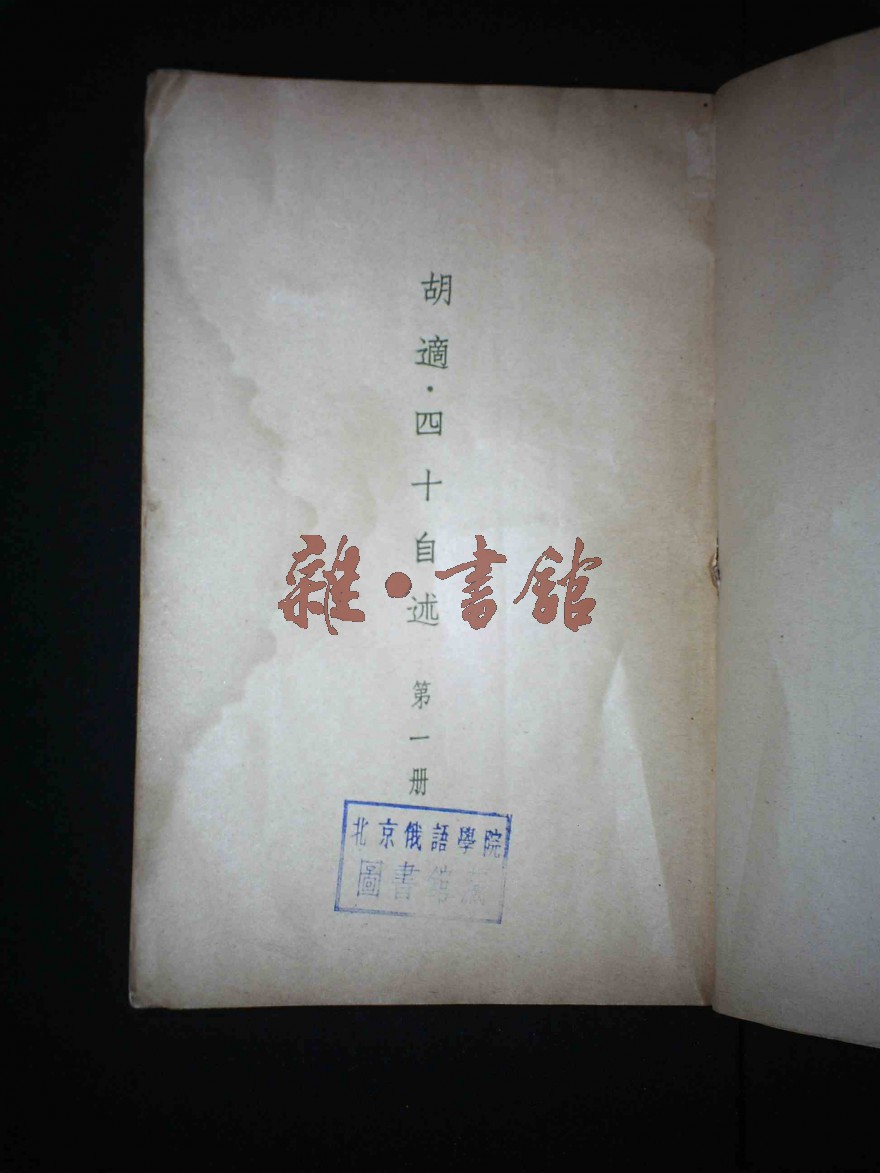 胡適·四十自述 第一册
雜·書舘
北京俄語學院
圖書館藏